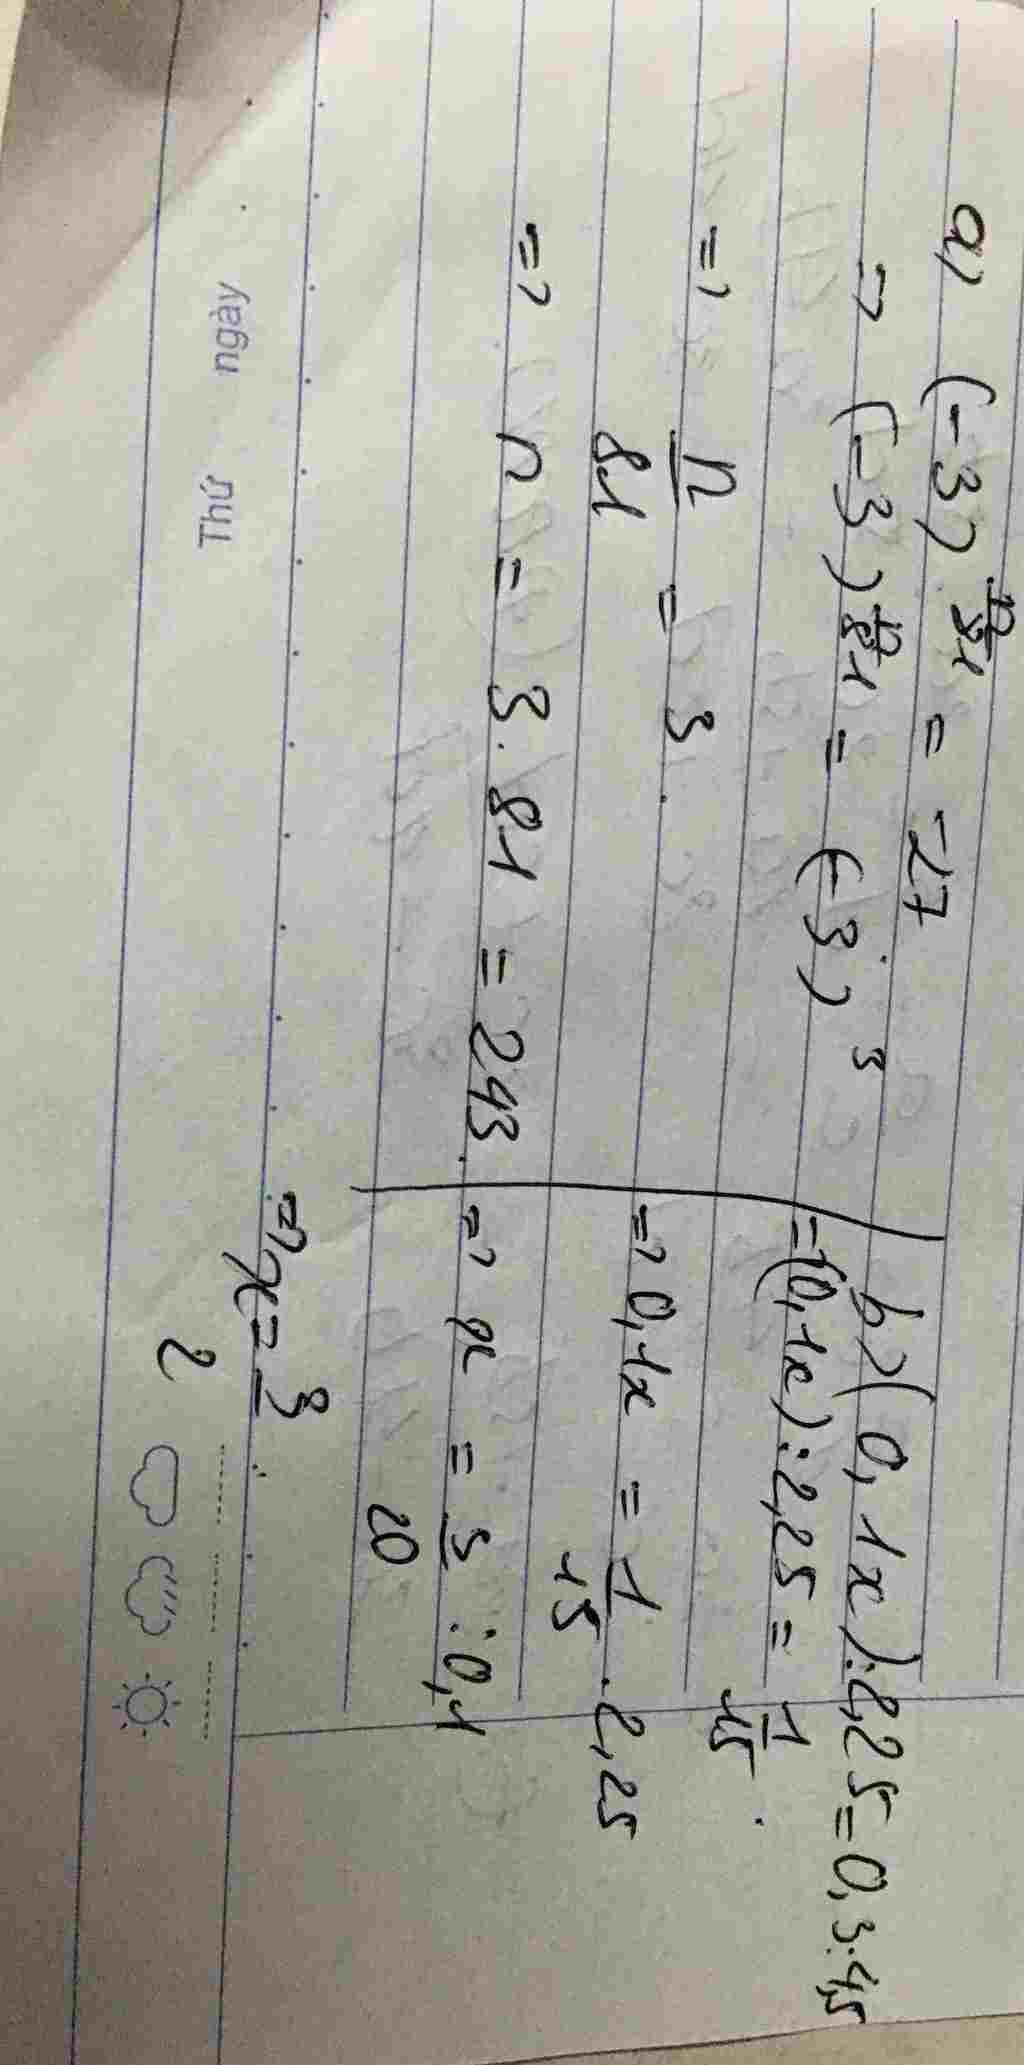 a) (-3)^(n/81) = -27
=> (-3)^(n/81) = (-3)^3
=> n/81 = 3
=> n = 3.81 = 243.
b) (0,1x):2,25=0,3:4,5
=> (0,1x):2,25 = 1/15.
=> 0,1x = 1/15 . 2,25
=> x = 3/20 : 0,1
=> x = 3/2.
Thứ ngày